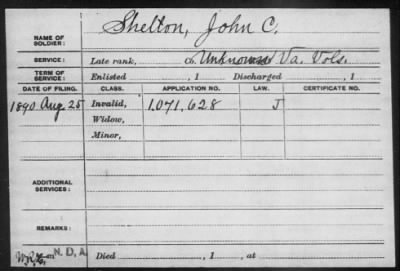 NAME OF SOLDIER: Shelton, John C.
SERVICE: Late rank, Co. Unknown Va. Vols.
TERM OF SERVICE: Enlisted , 1 Discharged , 1
DATE OF FILING. CLASS. APPLICATION NO. LAW. CERTIFICATE NO.
1890 Aug. 25 Invalid, 1.071.628 J
Widow,
Minor,
ADDITIONAL SERVICES:
REMARKS:
N. D. A. Died , 1 , at